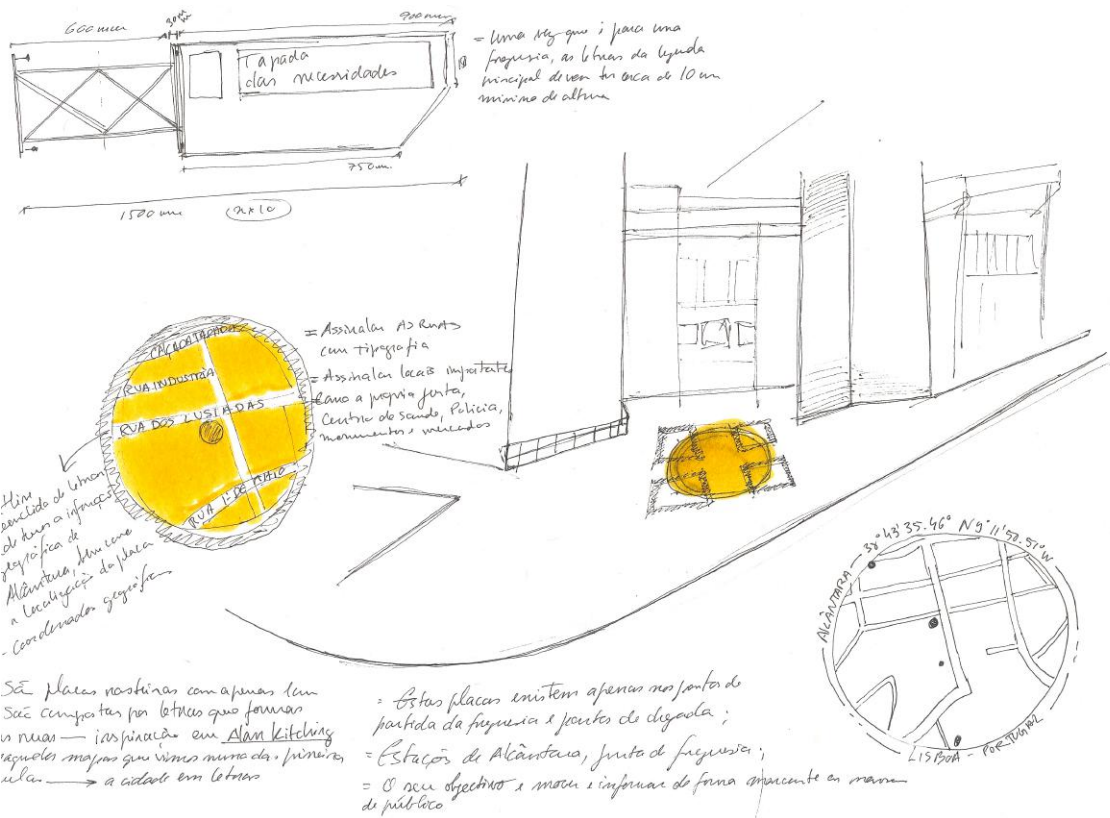 600mm
30mm
900mm
Tapada
das necessidades
= Uma vez que é para uma
freguesia, as letras da legenda
principal devem ter cerca de 10 cm
mínimo de altura
750mm
1500mm
RUA INDUSTRIA
RUA DOS LUSIADAS
RUA 1º DE MAIO
= Assinalar AS RUAS
com tipografia
= Assinalar locais importantes
como a própria junta,
Centro de saude, Policia,
monumentos e mercados
de letras
a informação
geográfica de
Alcântara, bem como
a localização da placa
- Coordenadas geográficas
ALCÂNTARA — 38º43'35.46" N 9º11'50.51"W
LISBOA - PORTUGAL
São placas rasteiras com apenas 1cm
São compostas por letras que formam
as ruas — inspiração em Alan Kitching
aqueles mapas que vimos numa das primeiras
aulas → a cidade em letras
= Estas placas existem apenas nos pontos de
partida da freguesia e pontos de chegada;
= Estação de Alcântara, junta de freguesia;
= O seu objectivo é mover e informar de forma marcante as massas
de público